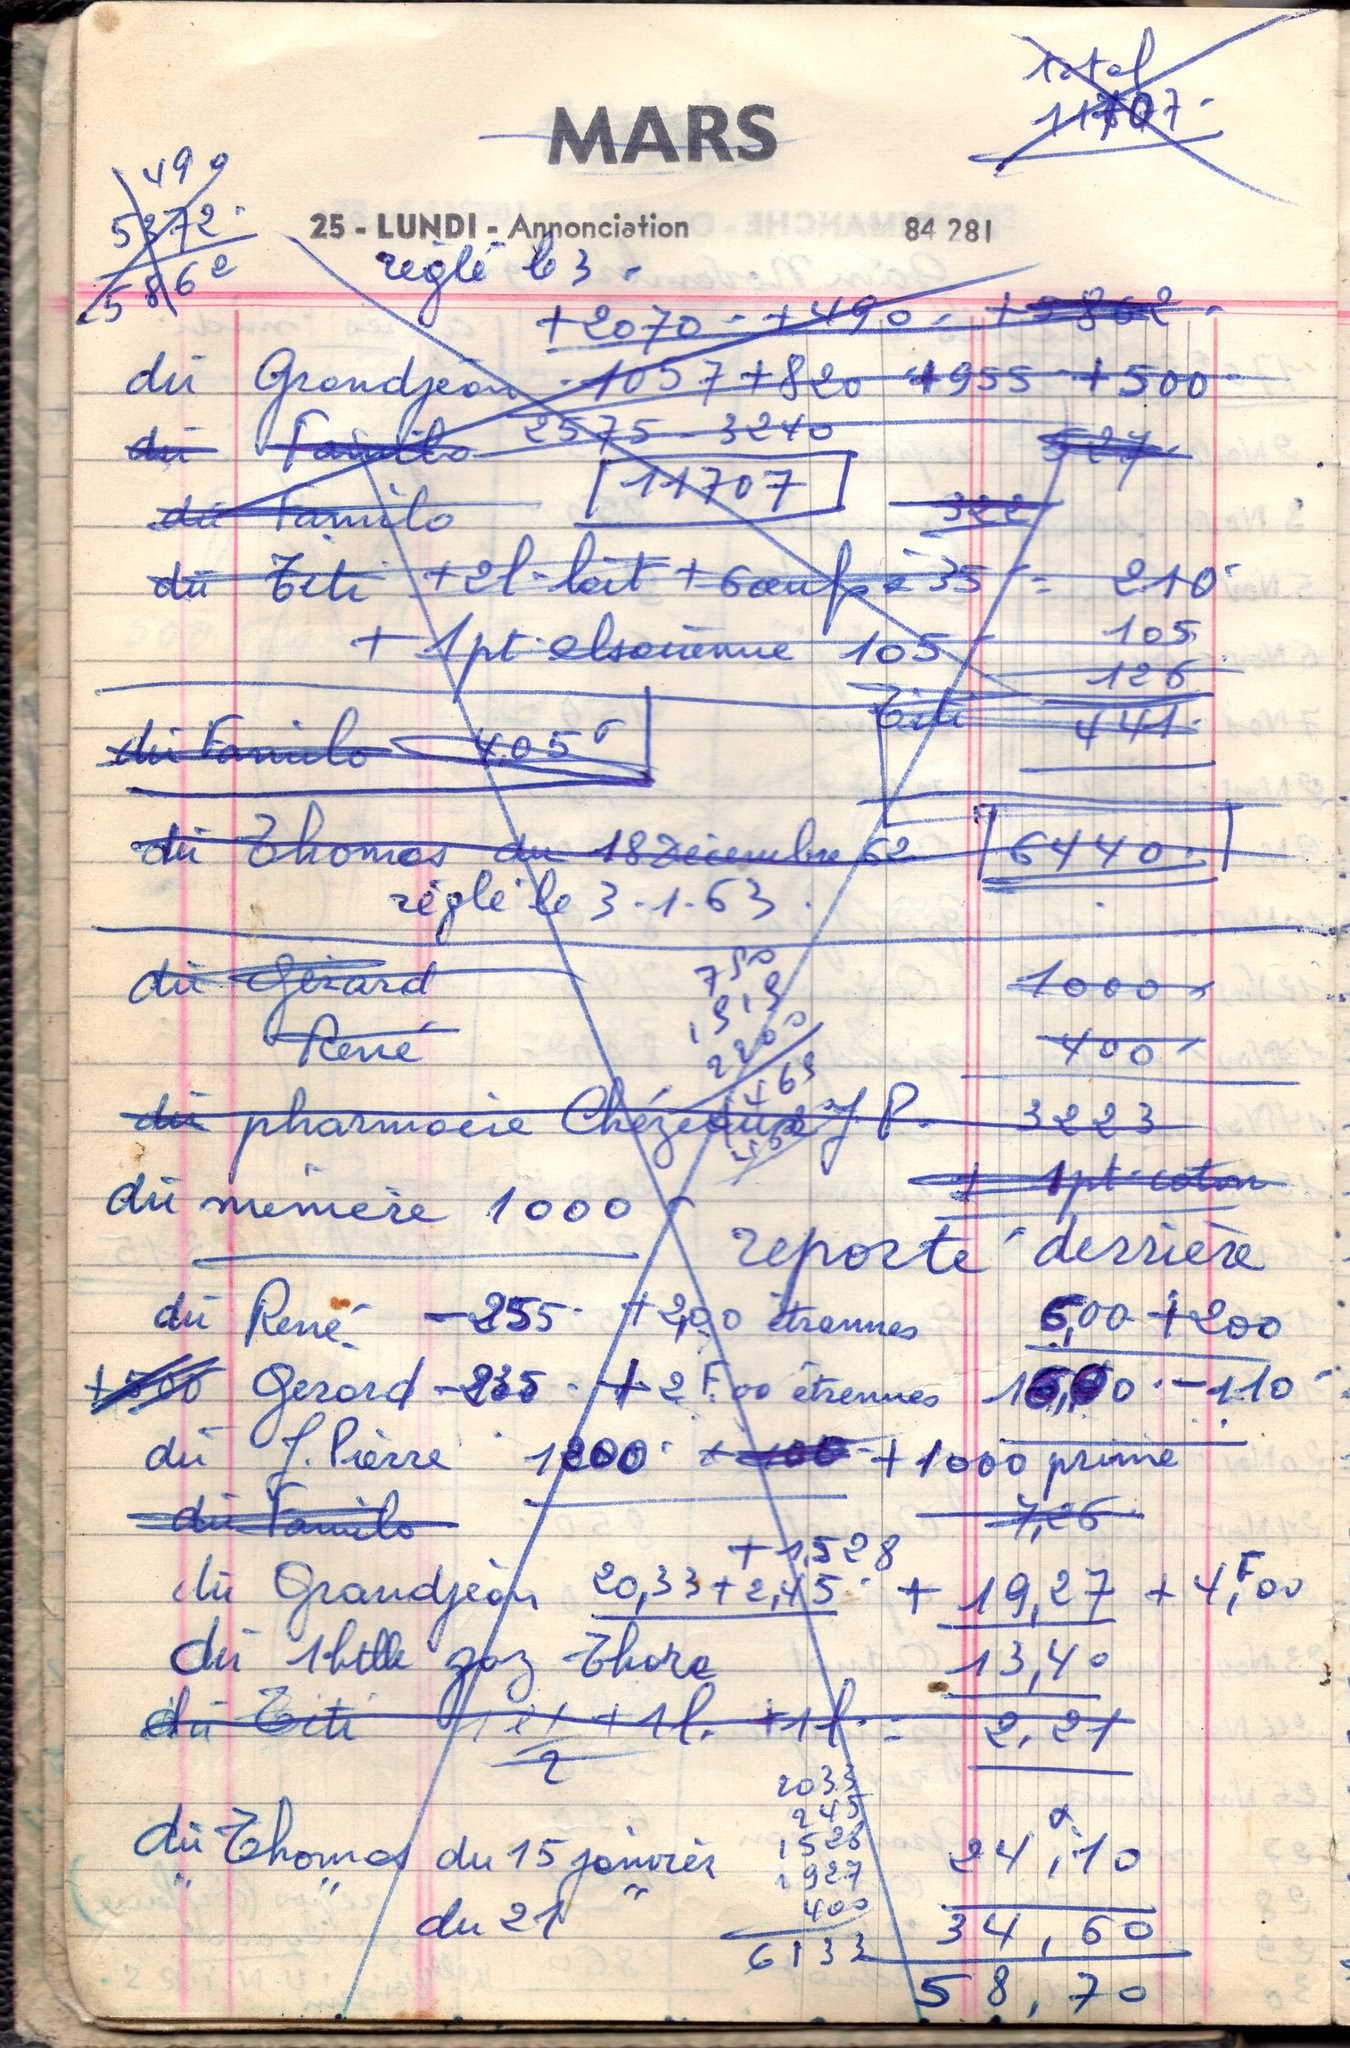 total
11707-
MARS
499
5372-
586e
25 - LUNDI - Annonciation 84 281
réglé le 3-
+2070- +490- +
dû Grandjean -1057+820 +955 +500-
dû Familo 2575-3240 527-
11707
dû Familo 322
dû Titi +2l-lait + 6œufs à 35 = 210-
+ 1pt alsacienne 105 105
126
Titi 441-
dû Familo 405-
dû Thomas du 18 Décembre 62 6440-
réglé le 3-1-63.
dû Gérard 1000-
750
1919
2200
René 400-
dû pharmacie J P. 3223
+ 1pt-coton
dû mémère 1000
reporté derrière
dû René -255- +2,00 étrennes 6,00 +200
+500 Gérard -235- +2F.00 étrennes -110-
dû J.Pierre 1200- +100- +1000 prime
dû Familo 7,26
+1,528
dû Grandjean 20,33+2,45- + 19,27 + 4,F00
dû 1btlle gaz Thora 13,40
dû Titi 1l 1/2 +1l. +1l. = 2,21
2033
245
1528
1927
400
6133
dû Thomas du 15 janvier 24,10
" " du 21 " 34,60
58,70